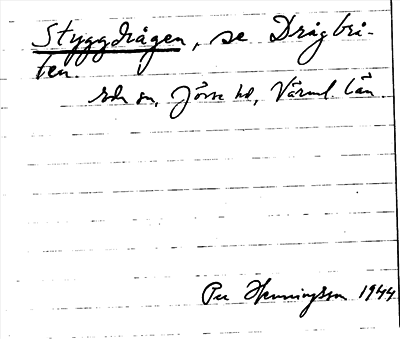 Styggdrågen, se Drågbri-
ten.
sn, Jösse hd, Värml. län
Per Henningsson 1944